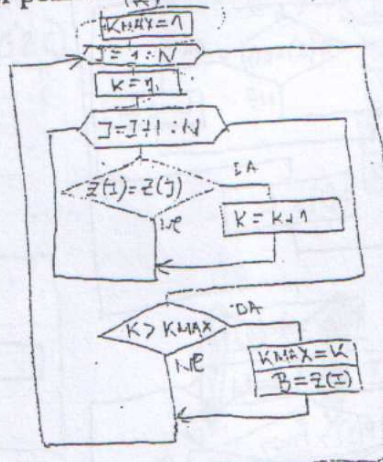 (A)
KMAX=1
I=1:N
K=1
J=I+1:N
Z(I)=Z(J)
DA
NE
K=K+1
K>KMAX
DA
NE
KMAX=K
B=Z(I)